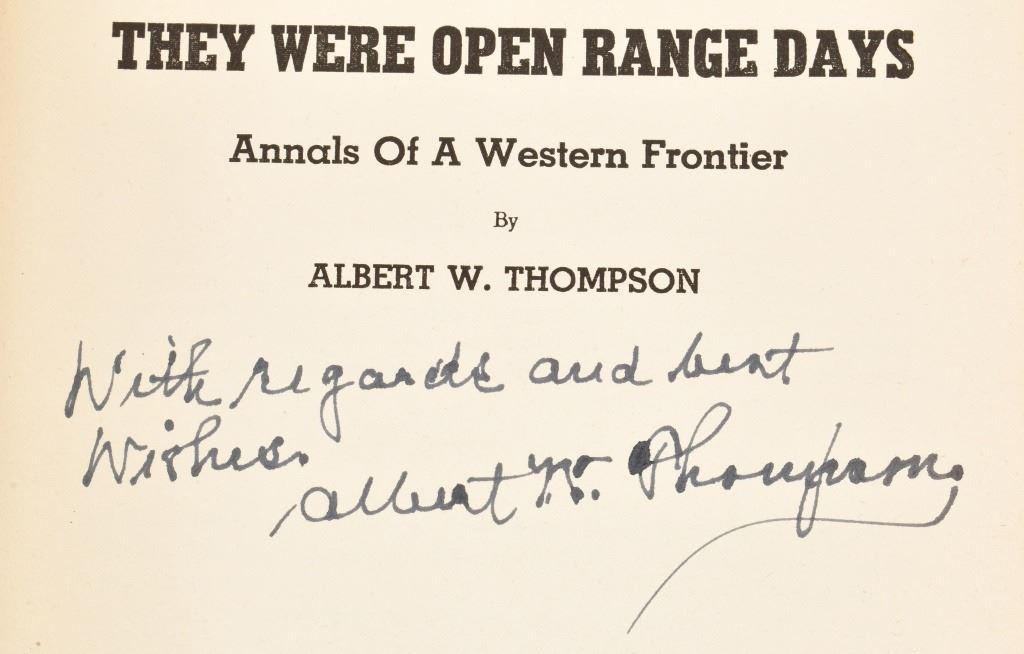 THEY WERE OPEN RANGE DAYS
Annals Of A Western Frontier
By
ALBERT W. THOMPSON
With regards and best
Wishes.
Albert W. Thompson.